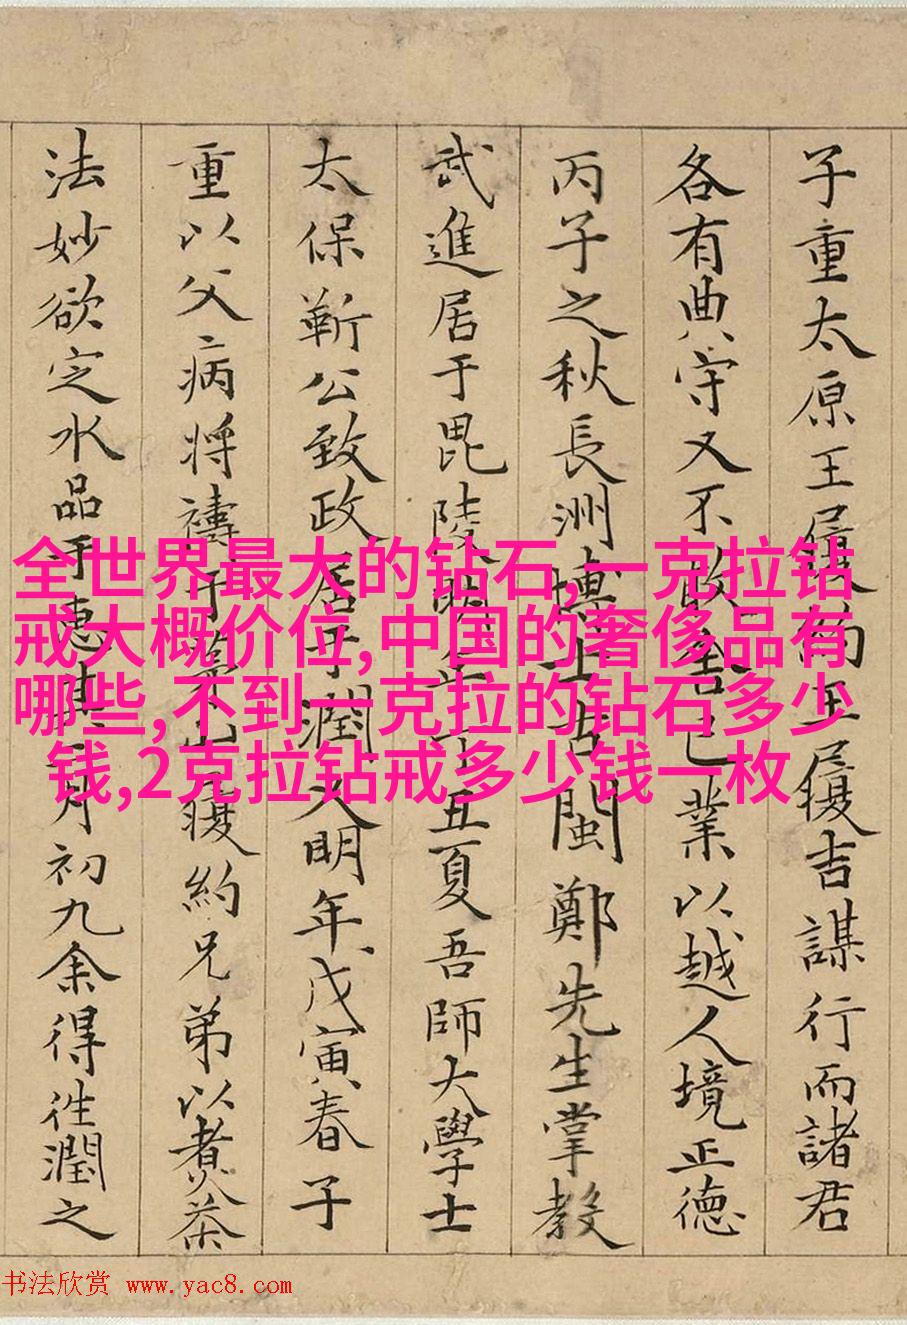 子重太原王而王履吉謀行而諸君
各有典守又不敢舍己業以越人境正德
丙子之秋長洲博士古閩鄭先生掌教
武進居于毘陵明年丁丑夏吾師大學士
太保靳公致政居于潤又明年戊寅春子
重以父病将禱于茅山履約兄弟以煑茶
法妙欲定水品于惠月初九余得往潤之
全世界最大的钻石,一克拉钻
戒大概价位,中国的奢侈品有
哪些,不到一克拉的钻石多少
钱,2克拉钻戒多少钱一枚
书法欣赏 www.yac8.com